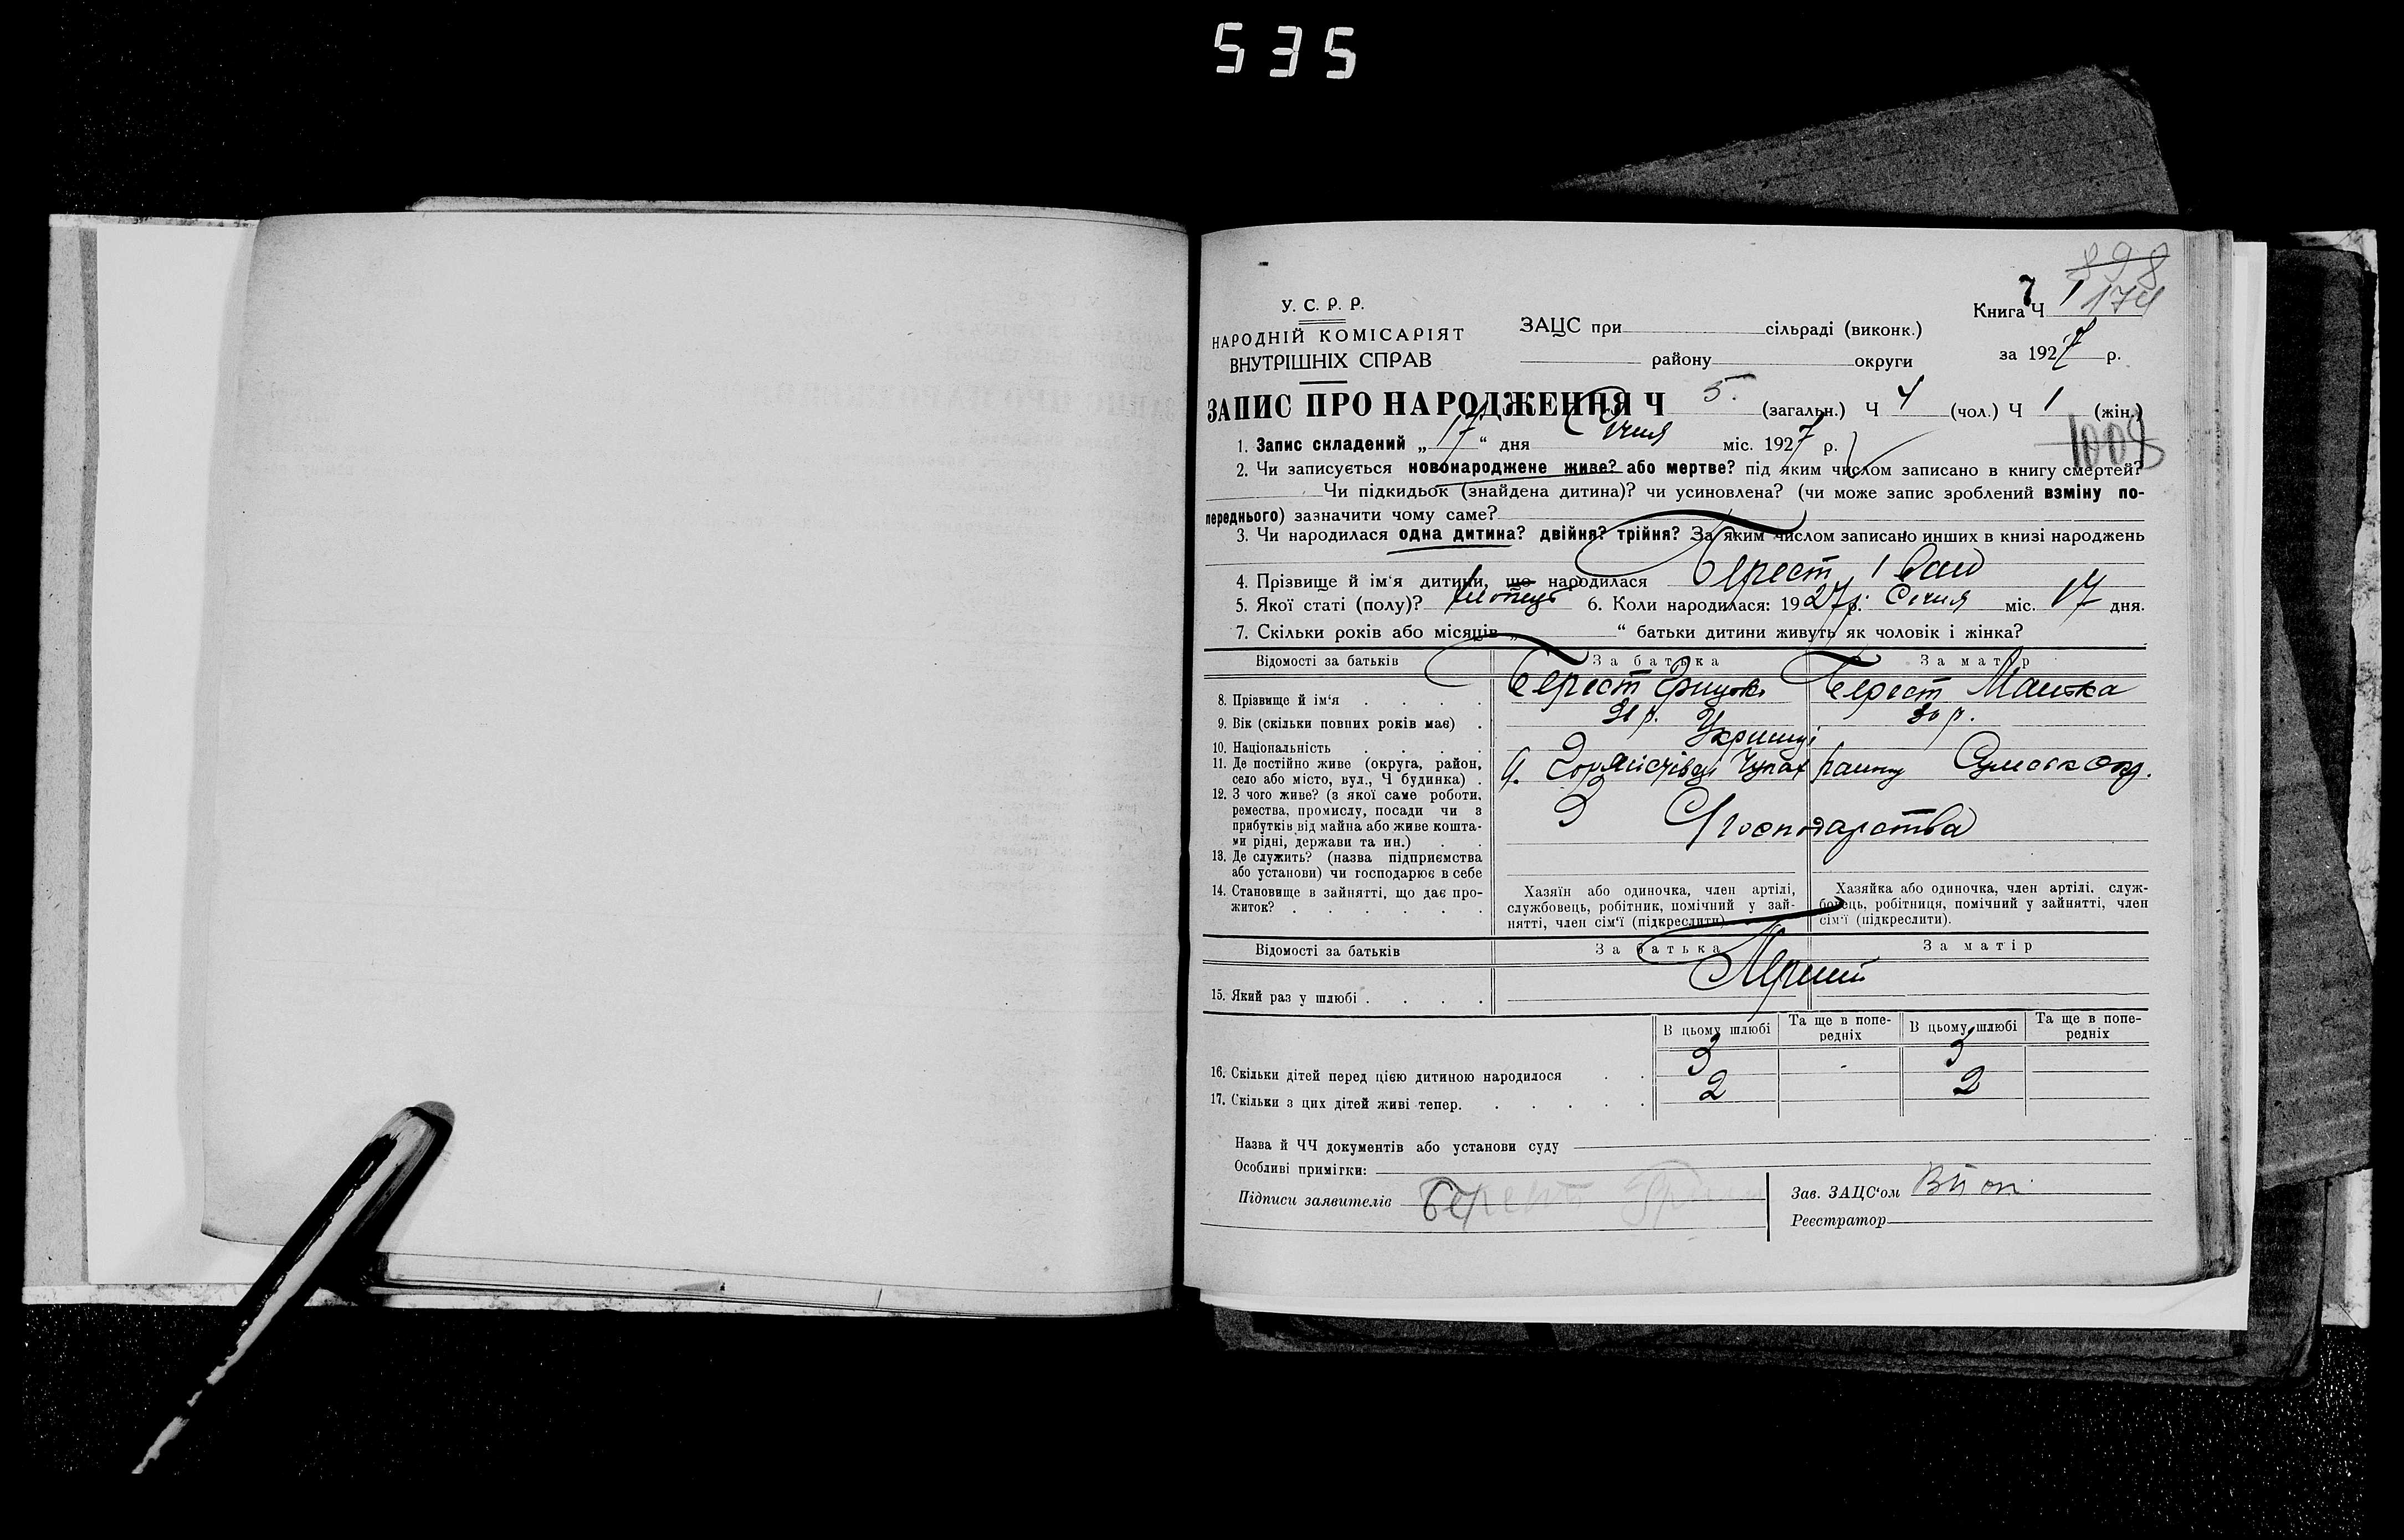 535
898
174
У. С. Р. Р.
НАРОДНІЙ КОМІСАРІЯТ
ВНУТРІШНІХ СПРАВ
ЗАЦС при сільраді (виконк.)
району округи
7
Книга Ч 1
за 1927 р.
ЗАПИС ПРО НАРОДЖЕННЯ Ч 5. (загальн.) Ч 4 (чол.) Ч 1 (жін.)
1. Запис складений „17“ дня Січня міс. 1927 р.
2. Чи записується новонароджене живе? або мертве? під яким числом записано в книгу смертей?
Чи підкидьок (знайдена дитина)? чи усиновлена? (чи може запис зроблений взміну по-
переднього) зазначити чому саме?
3. Чи народилася одна дитина? двійня? трійня? За яким числом записано инших в книзі народжень
4. Прізвище й ім'я дитини, що народилася Берест Іван
5. Якої статі (полу)? хлопець 6. Коли народилася: 1927 р. Січня міс. 17 дня.
7. Скільки років або місяців „ “ батьки дитини живуть як чоловік і жінка?
Відомості за батьків За батька За матір
8. Прізвище й ім'я Берест Грицко Берест Машка
9. Вік (скільки повних років має) 31 р. 30 р.
10. Національність Українці
11. Де постійно живе (округа, район,
село або місто, вул., Ч будинка)
району Сумськ окр.
12. З чого живе? (з якої саме роботи,
ремества, промислу, посади чи з
прибутків від майна або живе кошта-
ми рідні, держави та ин.)
З Господарства
13. Де служить? (назва підприємства
або установи) чи господарює в себе
14. Становище в зайнятті, що дає про-
житок?
Хазяїн або одиночка, член артілі,
службовець, робітник, помічний у зай-
нятті, член сім'ї (підкреслити)
Хазяйка або одиночка, член артілі, служ-
бовець, робітниця, помічний у зайнятті, член
сім'ї (підкреслити).
Відомості за батьків За батька За матір
15. Який раз у шлюбі Перший
В цьому шлюбі Та ще в попе-
редніх В цьому шлюбі Та ще в попе-
редніх
16. Скільки дітей перед цією дитиною народилося 3 3
17. Скільки з цих дітей живі тепер. 2 2
Назва й ЧЧ документів або установи суду
Особливі примітки:
Підписи заявителів Берест Гри
Зав. ЗАЦС'ом
Реєстратор